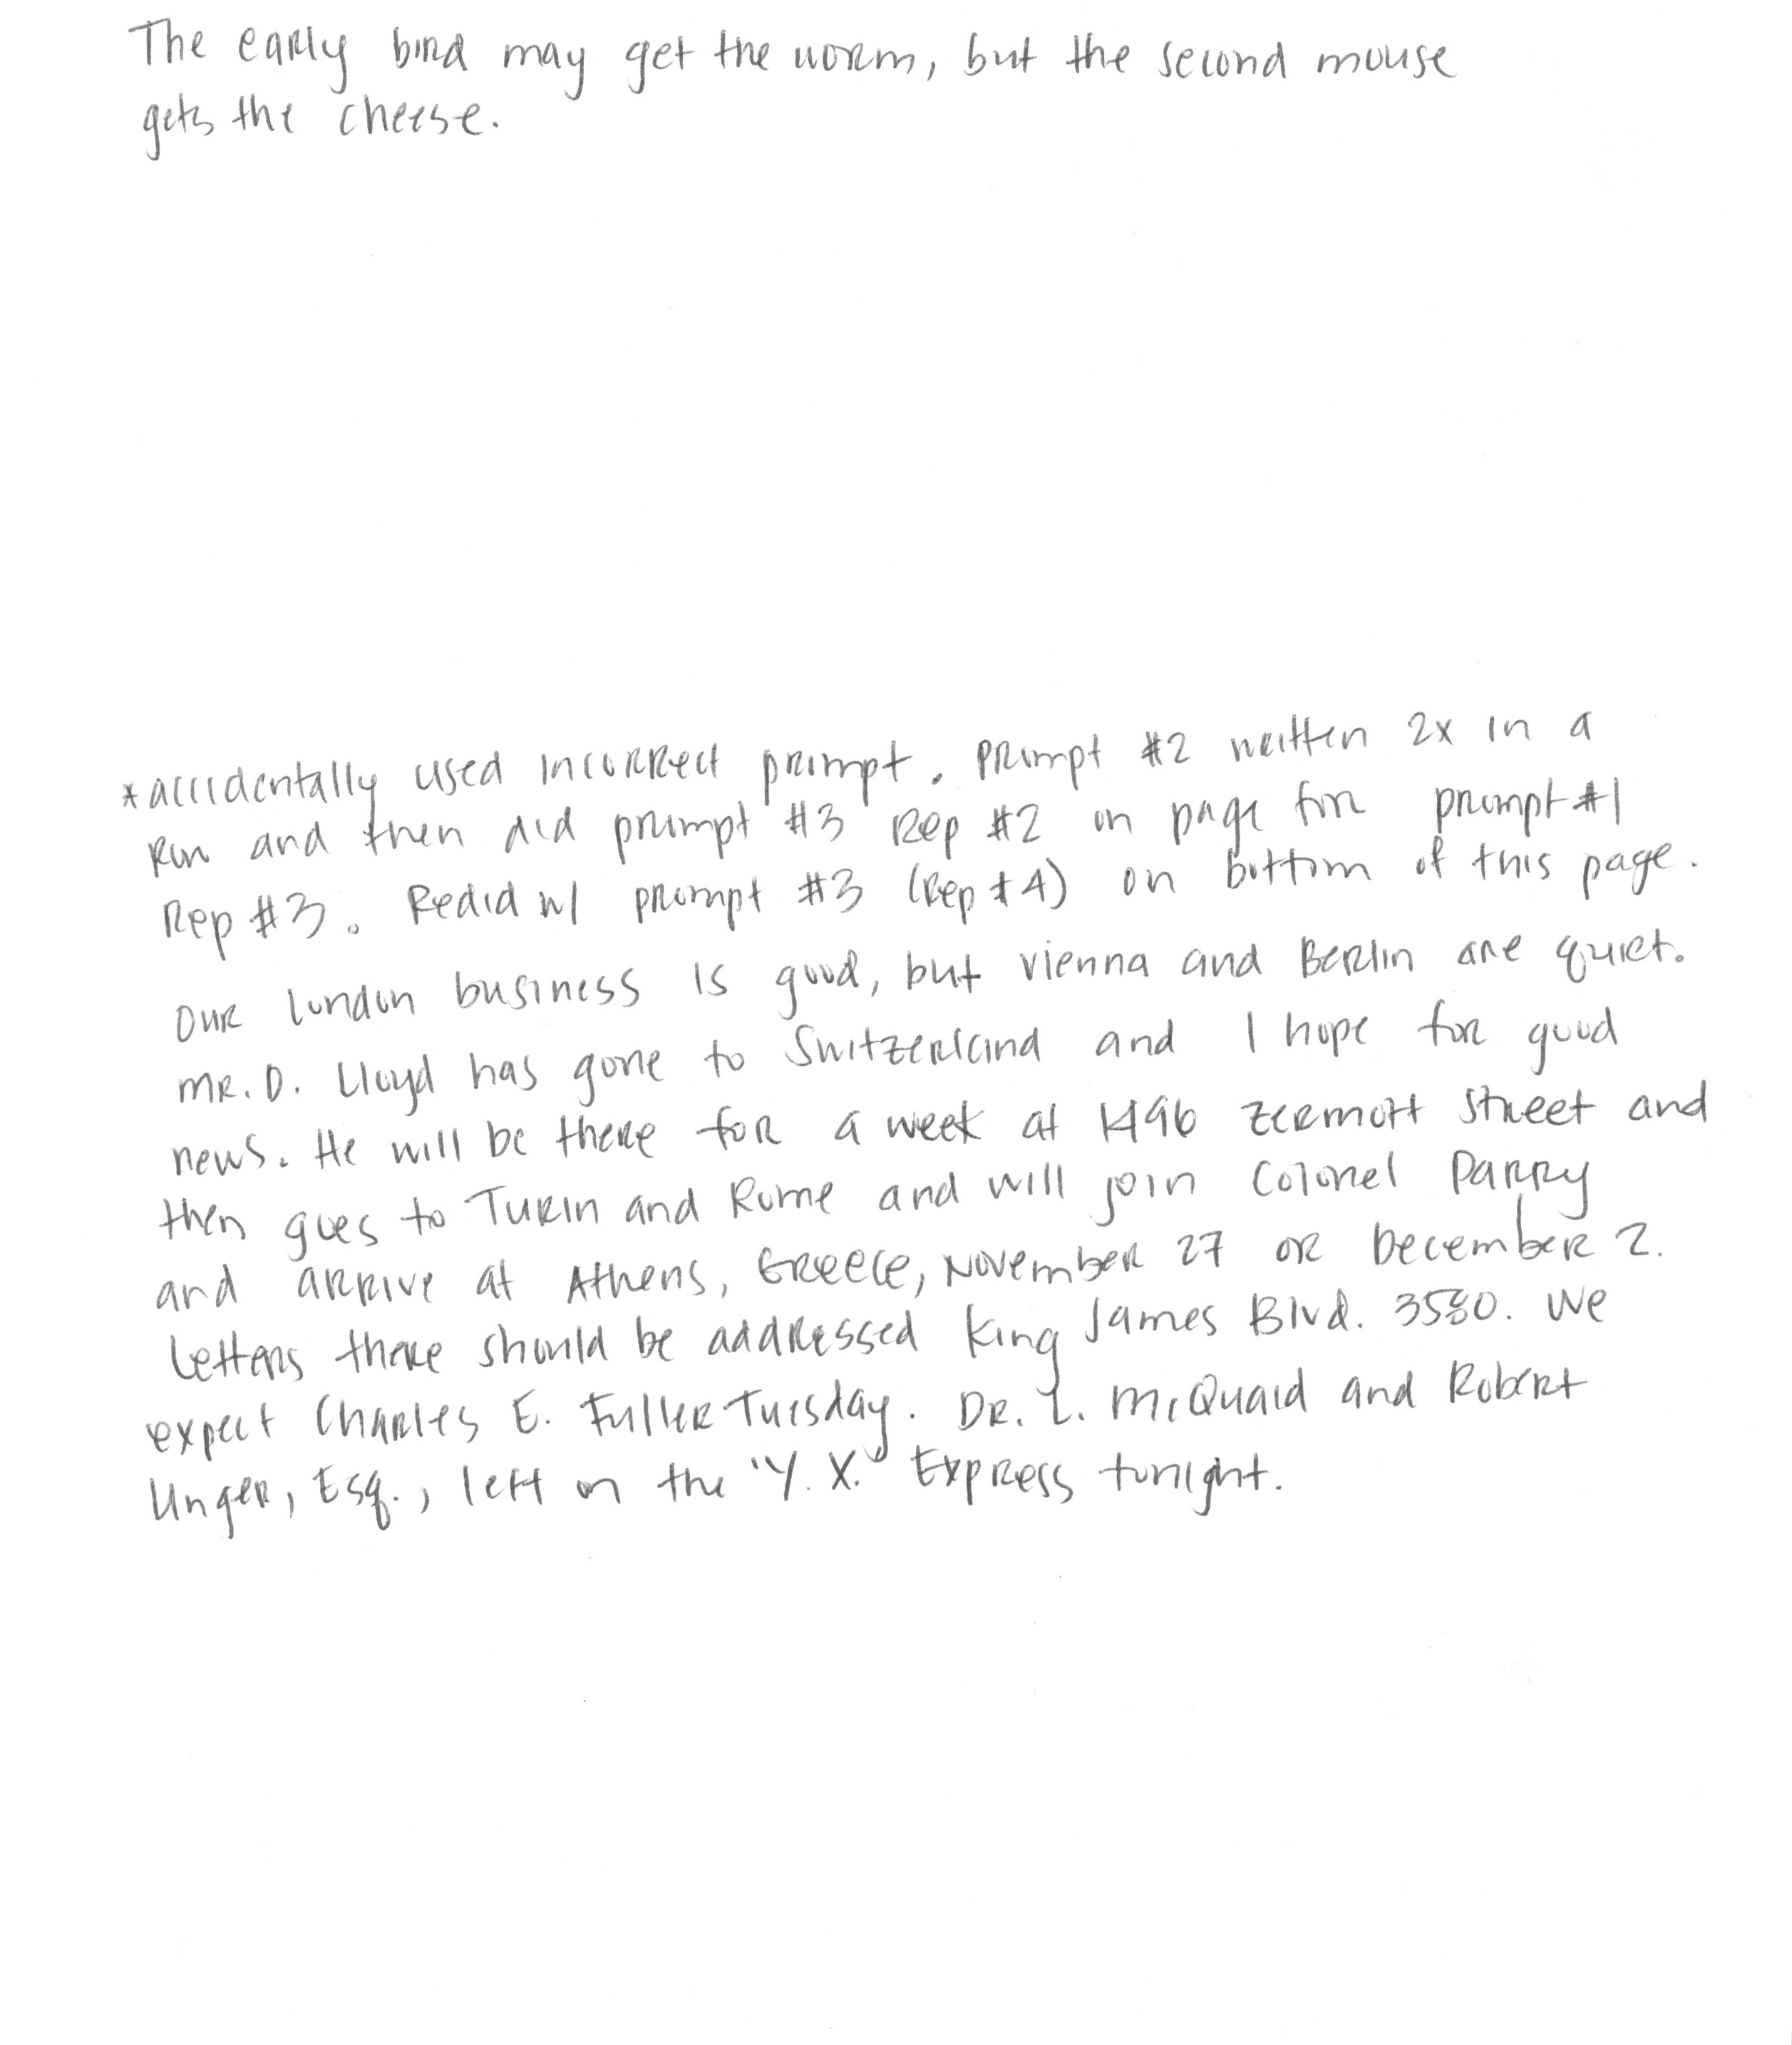 The early bird may get the worm, but the second mouse
gets the cheese.
*accidentally used incorrect prompt. Prompt #2 written 2x in a
row and then did prompt #3 Rep #2 on page for prompt #1
Rep #3. Redid w/ prompt #3 (Rep #4) on bottom of this page.
Our London business is good, but Vienna and Berlin are quiet.
Mr. D. Lloyd has gone to Switzerland and I hope for good
news. He will be there for a week at 1496 Zermott Street and
then goes to Turin and Rome and will join Colonel Parry
and arrive at Athens, Greece, November 27 or December 2.
Letters there should be addressed King James Blvd. 3580. We
expect Charles E. Fuller Tuesday. Dr. L. McQuaid and Robert
Unger, Esq., left on the "Y. X." Express tonight.